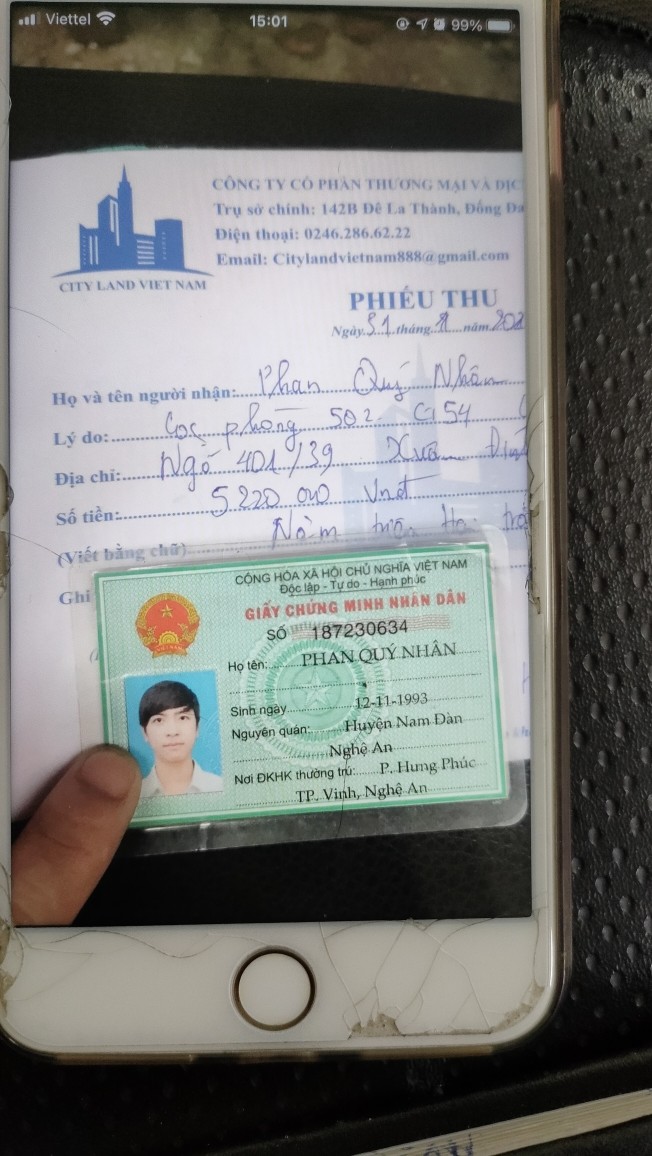 Viettel 15:01 99%
CÔNG TY CỔ PHẦN THƯƠNG MẠI VÀ DỊC
Trụ sở chính: 142B Đê La Thành, Đống Đa
Điện thoại: 0246.286.62.22
Email: Citylandvietnam888@gmail.com
CITY LAND VIET NAM
PHIẾU THU
Ngày 31 tháng năm 202
Họ và tên người nhận: Phan Quý Nhân
Lý do: Cọc phòng 502 C154
Địa chỉ: Ngõ 401/39 Xuân Đỉnh
Số tiền: 5220 000 Vnđ
(Viết bằng chữ) Năm triệu Hai tră
Ghi
CỘNG HÒA XÃ HỘI CHỦ NGHĨA VIỆT NAM
Độc lập - Tự do - Hạnh phúc
GIẤY CHỨNG MINH NHÂN DÂN
SỐ 187230634
Họ tên: PHAN QUÝ NHÂN
Sinh ngày 12-11-1993
Nguyên quán: Huyện Nam Đàn
Nghệ An
Nơi ĐKHK thường trú: P. Hưng Phúc
TP. Vinh, Nghệ An